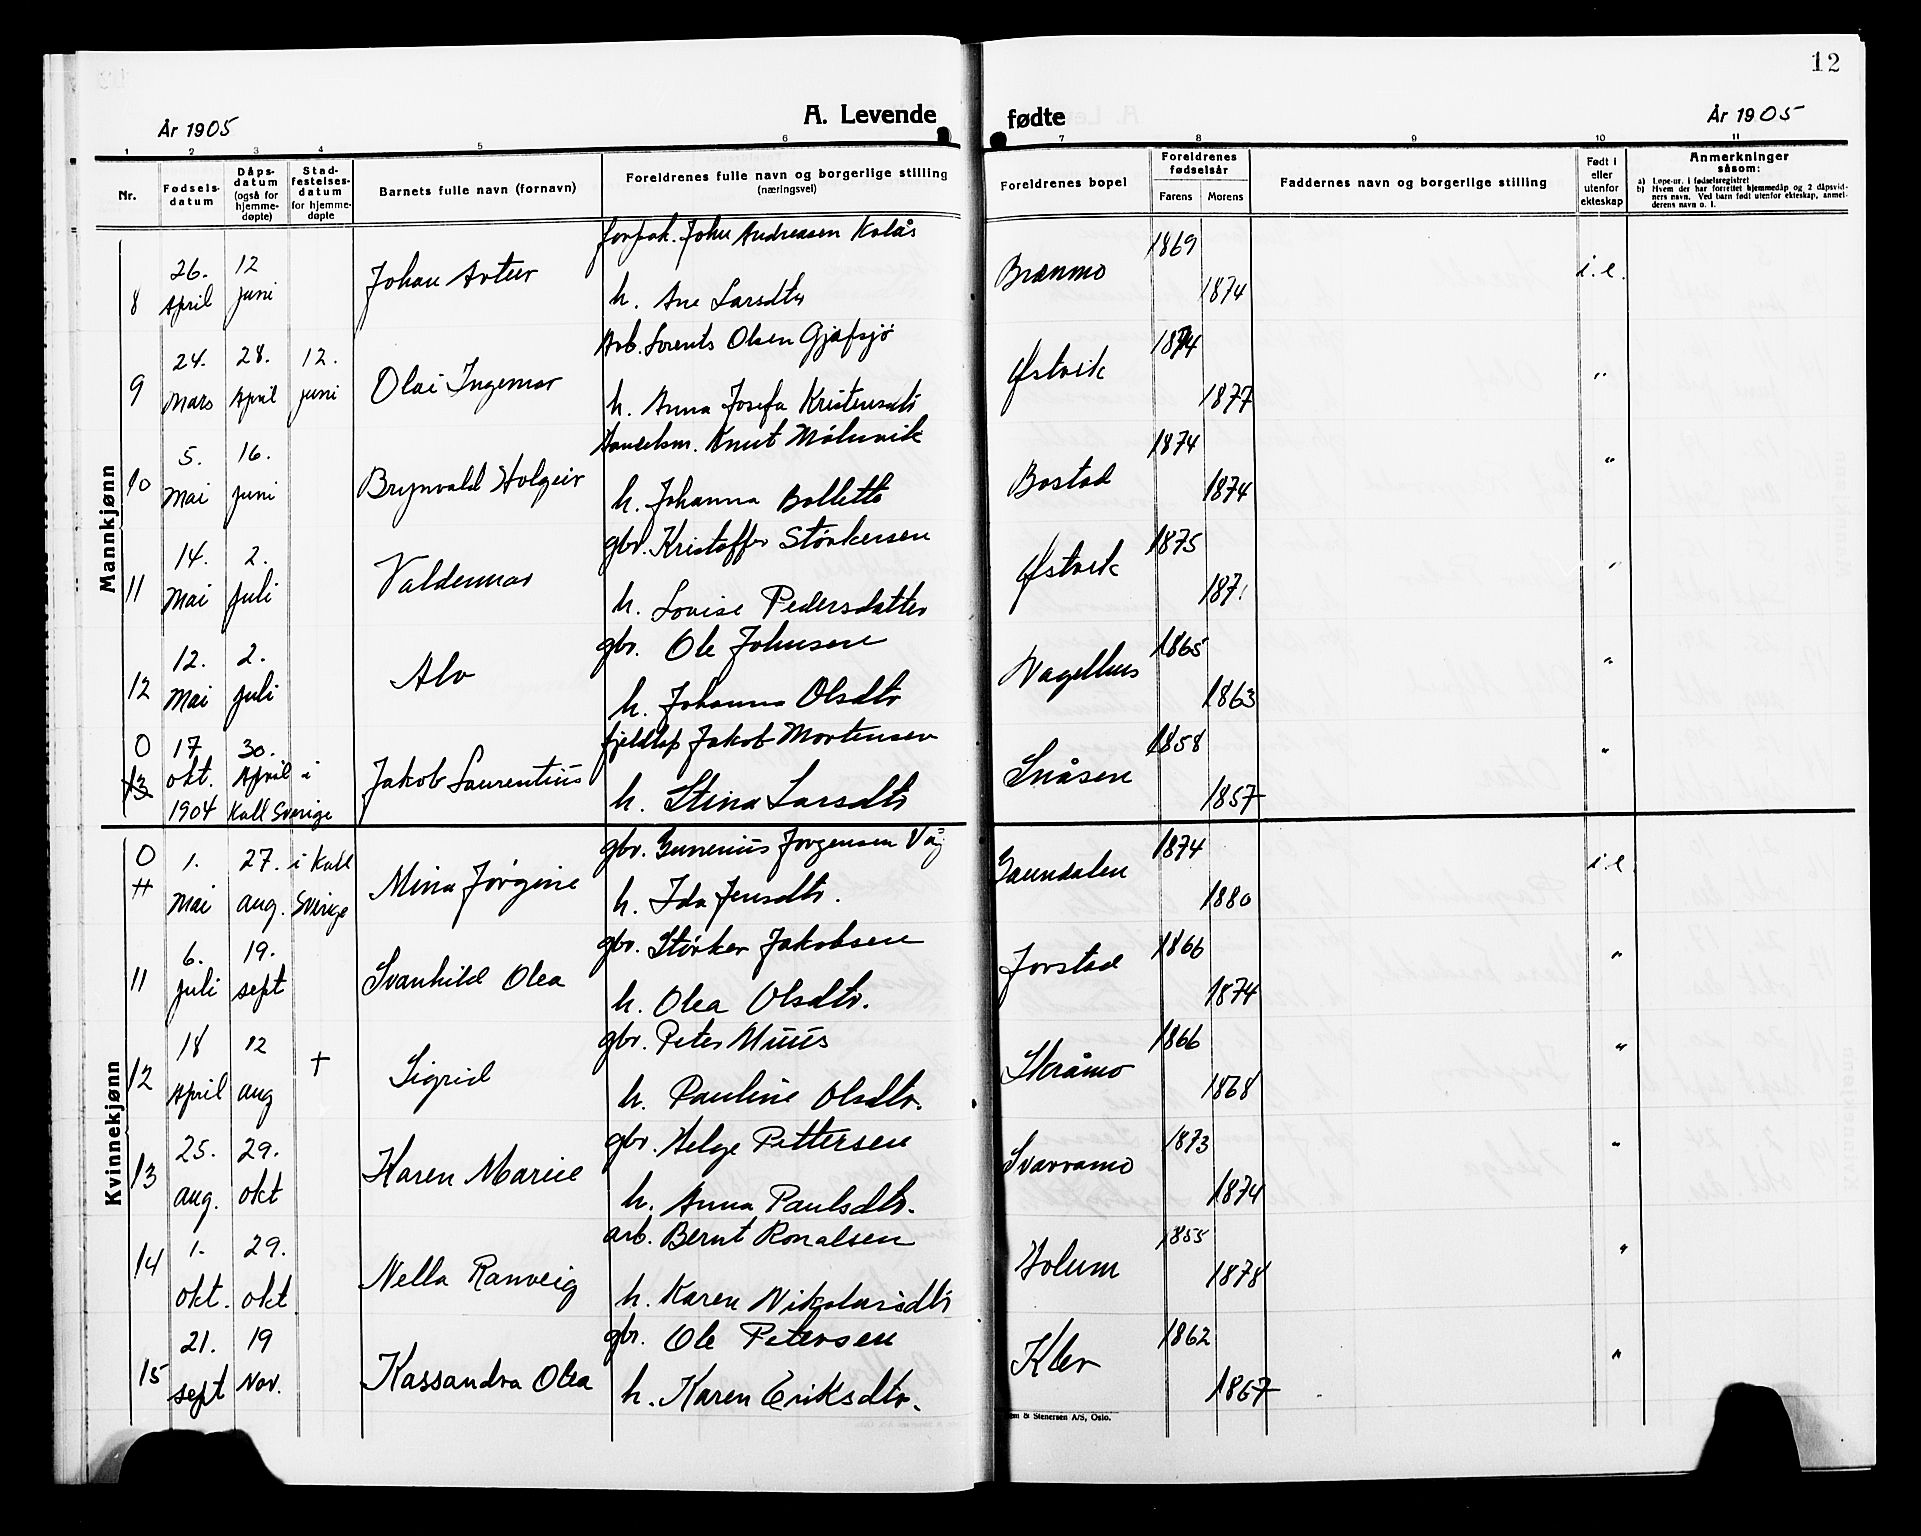 12
År 1905
A. Levende
fødte
År 1905
1 2 3 4 5 6 7 8 9 10 11
Nr.
Fødsels-
datum
Dåps-
datum
(også for
hjemme-
døpte)
Stad-
festelses-
datum
for hjemme-
døpte
Barnets fulle navn (fornavn)
Foreldrenes fulle navn og borgerlige stilling
(næringsvei)
Foreldrenes bopel
Foreldrenes
fødselsår
Farens
Morens
Faddernes navn og borgerlige stilling
Født i
eller
utenfor
ekteskap
Anmerkninger
såsom:
a) Løpe-nr. i fødselsregistret
b) Hvem der har forrettet hjemmedåp og 2 dåpsvid-
ners navn. Ved barn født utenfor ekteskap, anmel-
derens navn o. l.
Mannkjønn
8 26. April 12 juni Johan Artur
forpak. Johu Andreasen Kolås
h. Ane Larsdtr
Brænmo 1869 1874 i.e.
9 24. Mars 28. April 12. juni Olai Ingemar
Arb. Lorents Olsen Gjøfsjø
h. Anna Josefa Kristensdtr
Østvik 1874 1877 "
10 5. Mai 16. juni Brynvald Holgeir
Handelsm. Knut
h. Johanna
Bostad 1874 1874 "
11 14. Mai 2. Juli Valdemar
gbr. Kristoffer Størkersen
h. Lovise Pedersdatter
Østvik 1875 "
12 12. Mai 2. juli Alv
gbr. Ole Johnsen
h. Johanna Olsdtr
Vagelhus 1865 1863 "
0 13 17 okt. 1904 30. April i Kall Sverige Jakob Laurentius
fjeldlap Jakob Mortensen
h. Stina Larsdtr
Snåsen 1858 1857 "
Kvinnekjønn
0 11 1. Mai 27. aug. i Kall Sverige Mina Jørgine
gbr. Gunerius Jørgensen
h. Ida Jensdtr.
Gaundalen 1874 1880 i.e.
11 6. juli 19. sept Svanhild Olea
gbr. Størker Jakobsen
h. Olea Olsdtr.
Jorstad 1866 1874 "
12 18 April 12 aug + Sigrid
gbr. Peter Muus
h. Pauline Olsdtr.
Skråmo 1866 1868 "
13 25. aug. 29. okt Karen Marie
gbr. Helge Pettersen
h. Anna Paulsdtr.
Svarvamo 1873 1874 "
14 1. okt. 29. okt Nella Ranveig
arb. Bernt Ronalsen
h. Karen Nikolaisdtr
Holum 1855 1878 "
15 21. sept 19 Nov. Kassandra Olea
gbr. Ole Petersen
h. Karen Eriksdtr.
Klev 1862 1867 "
& Stenersen A/S, Oslo.